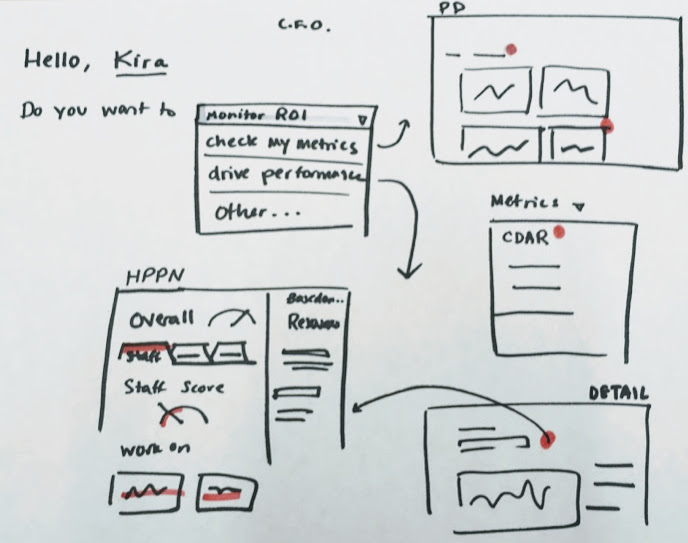 C.F.O.
PD
Hello, Kira
Do you want to
Monitor ROI
check my metrics
drive performance
Other...
Metrics
CDAR
HPPN
Overall
Staff
Staff Score
Work on
Based on..
DETAIL